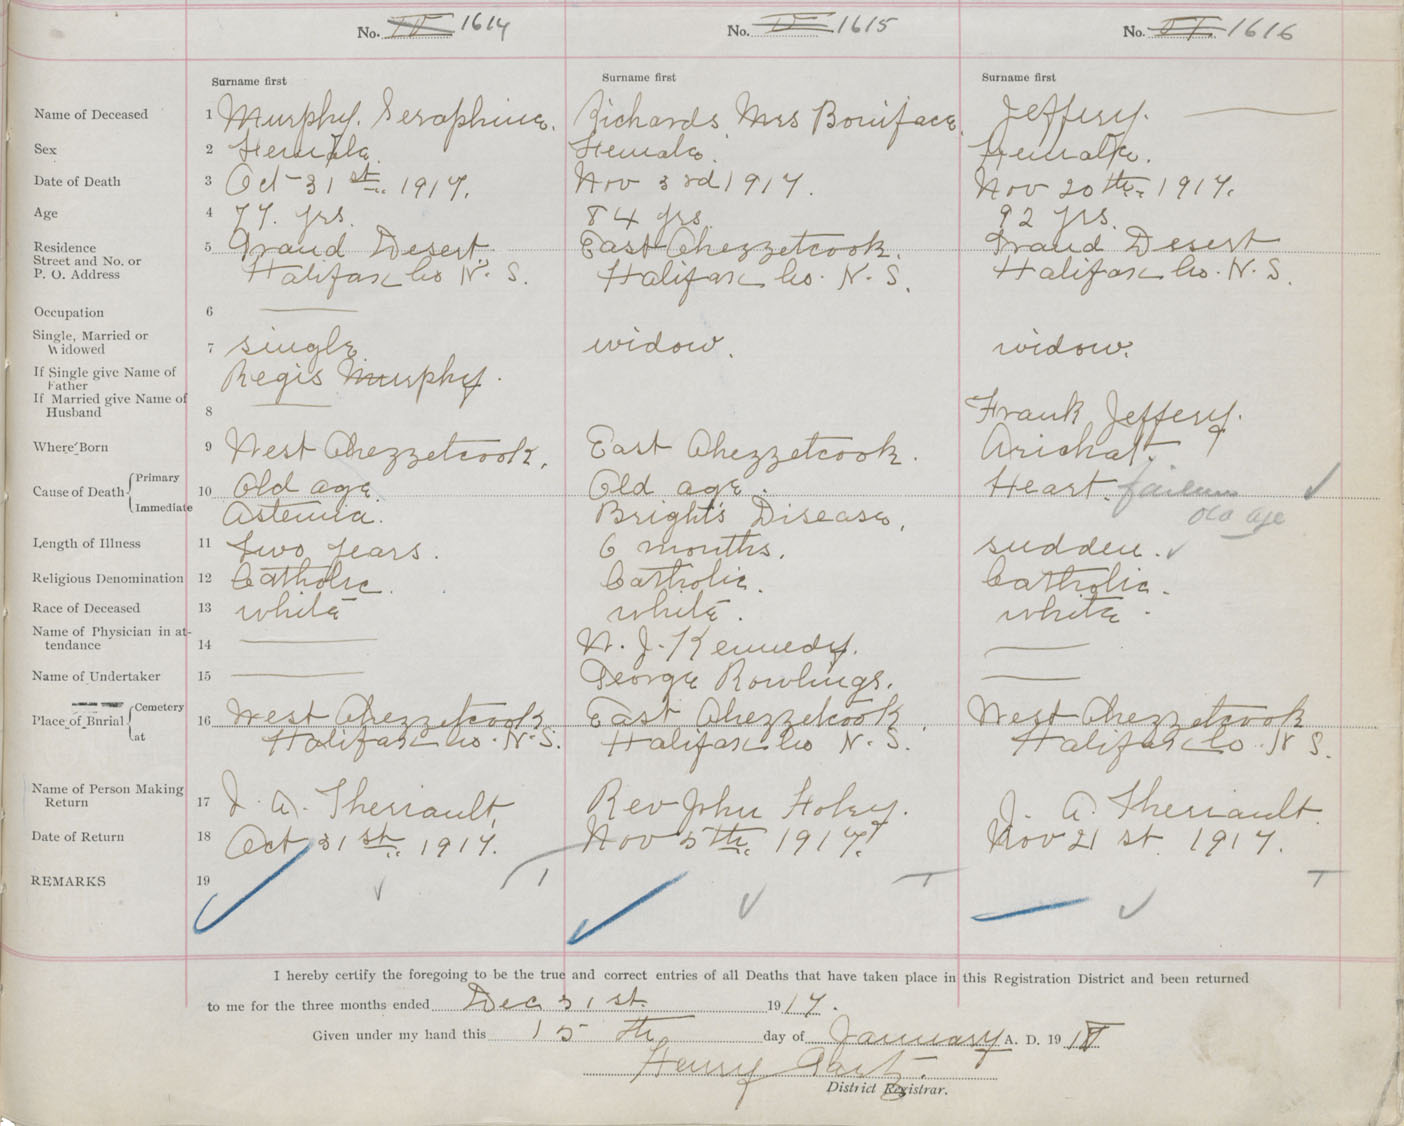 No. 1614 No. 1615 No. 1616
Surname first Surname first Surname first
Name of Deceased 1 Murphy. Seraphine. Richards, Mrs Boniface. Jeffery.
Sex 2 Female. Female. Female.
Date of Death 3 Oct 31st 1917. Nov 3rd 1917. Nov 20th 1917.
Age 4 77. yrs. 84 yrs. 92 yrs.
Residence 5 Grand Desert. East Chezzetcook. Grand Desert
Street and No. or
P. O. Address Halifax Co N. S. Halifax Co. N. S. Halifax Co. N. S.
Occupation 6
Single, Married or
Widowed 7 single. widow. widow.
If Single give Name of
Father Regis Murphy.
If Married give Name of
Husband 8 Frank Jeffery.
Where Born 9 West Chezzetcook. East Chezzetcook. Arichat.
Cause of Death Primary 10 Old age. Old age. Heart. failure
Immediate Astemia. Bright's Disease. old age
Length of Illness 11 two years. 6 months. sudden.
Religious Denomination 12 Catholic. Catholic. Catholic.
Race of Deceased 13 white white. white.
Name of Physician in at-
tendance 14 W. J. Kennedy.
Name of Undertaker 15 George Rowlings.
Place of Burial Cemetery 16 West Chezzetcook East Chezzetcook West Chezzetcook
at Halifax Co. N. S. Halifax Co N. S. Halifax Co. N S.
Name of Person Making
Return 17 J. A. Theriault, Rev John Foley. J. A. Theriault.
Date of Return 18 Oct 31st 1917. Nov 5th 1917. Nov 21 st 1917.
REMARKS 19
I hereby certify the foregoing to be the true and correct entries of all Deaths that have taken place in this Registration District and been returned
to me for the three months ended Dec 31st 1917.
Given under my hand this 15th day of January A. D. 1918
Henry
District Registrar.